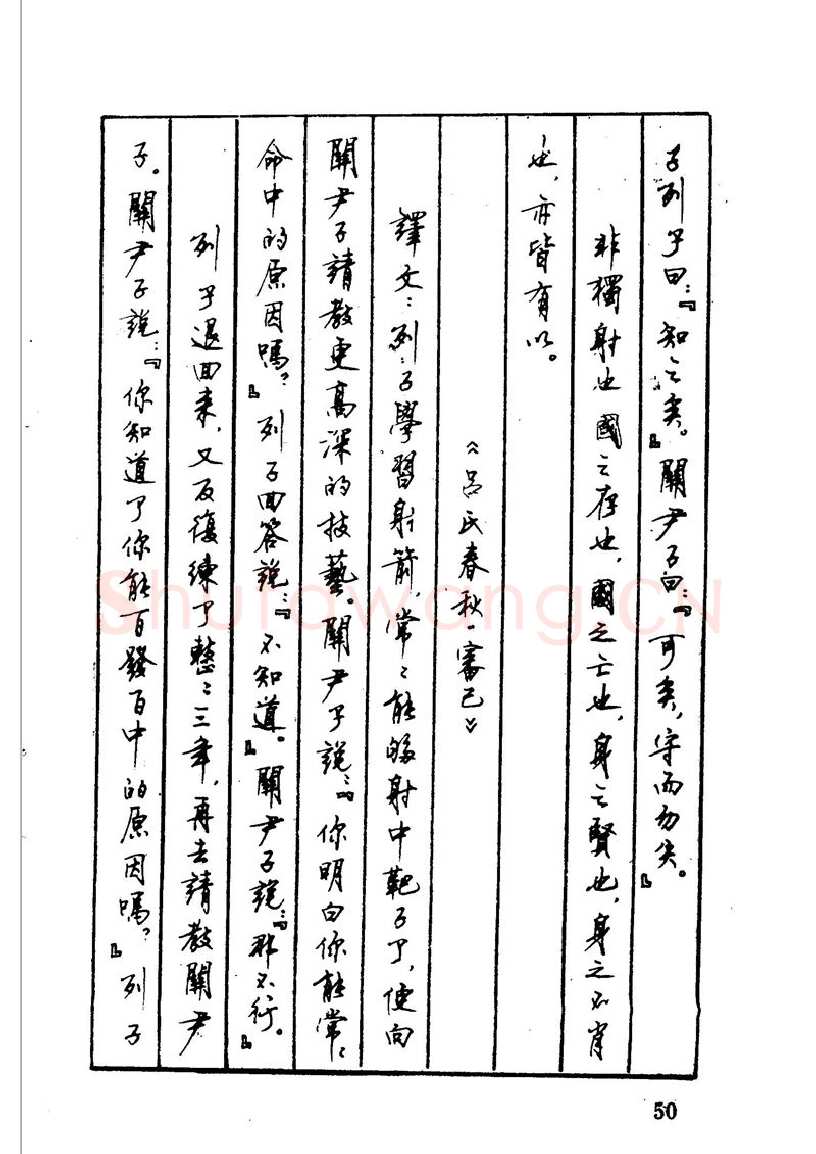 子列子曰：『知之矣。』關尹子曰：『可矣，守而勿失。』
非獨射也國之存也，國之亡也，身之賢也，身之不肖
也，亦皆有以。
《呂氏春秋·審己》
譯文：列子學習射箭，常々能够射中靶子了，便向
關尹子請教更高深的技藝。關尹子說：『你明白你能常々
命中的原因嗎？』列子回答說：『不知道。』關尹子說：『那不行。』
列子退回來，又反復練了整々三年，再去請教關尹
子。關尹子說：『你知道了你能百發百中的原因嗎？』列子
50
Shufawang.CN